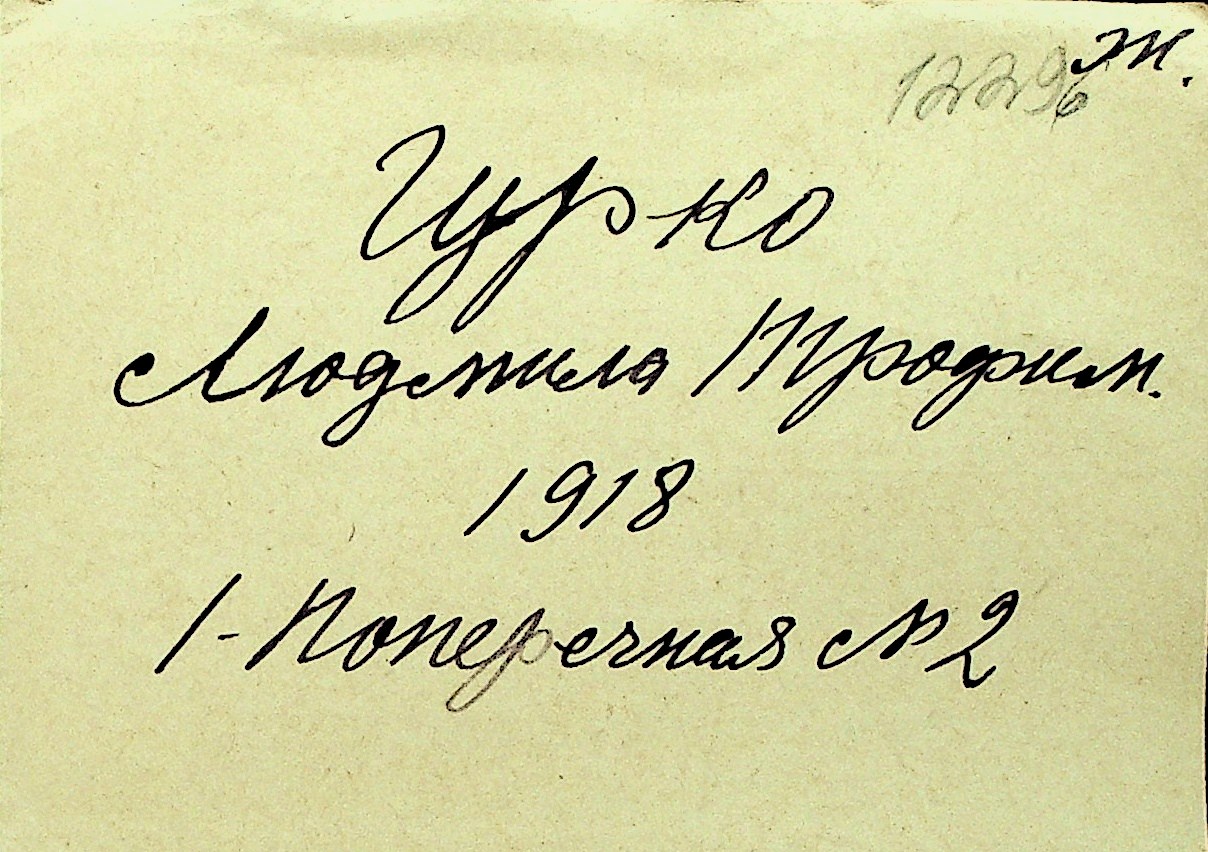 ж.
12296
Гурко
Людмила Трофим.
1918
1-Поперечная № 2